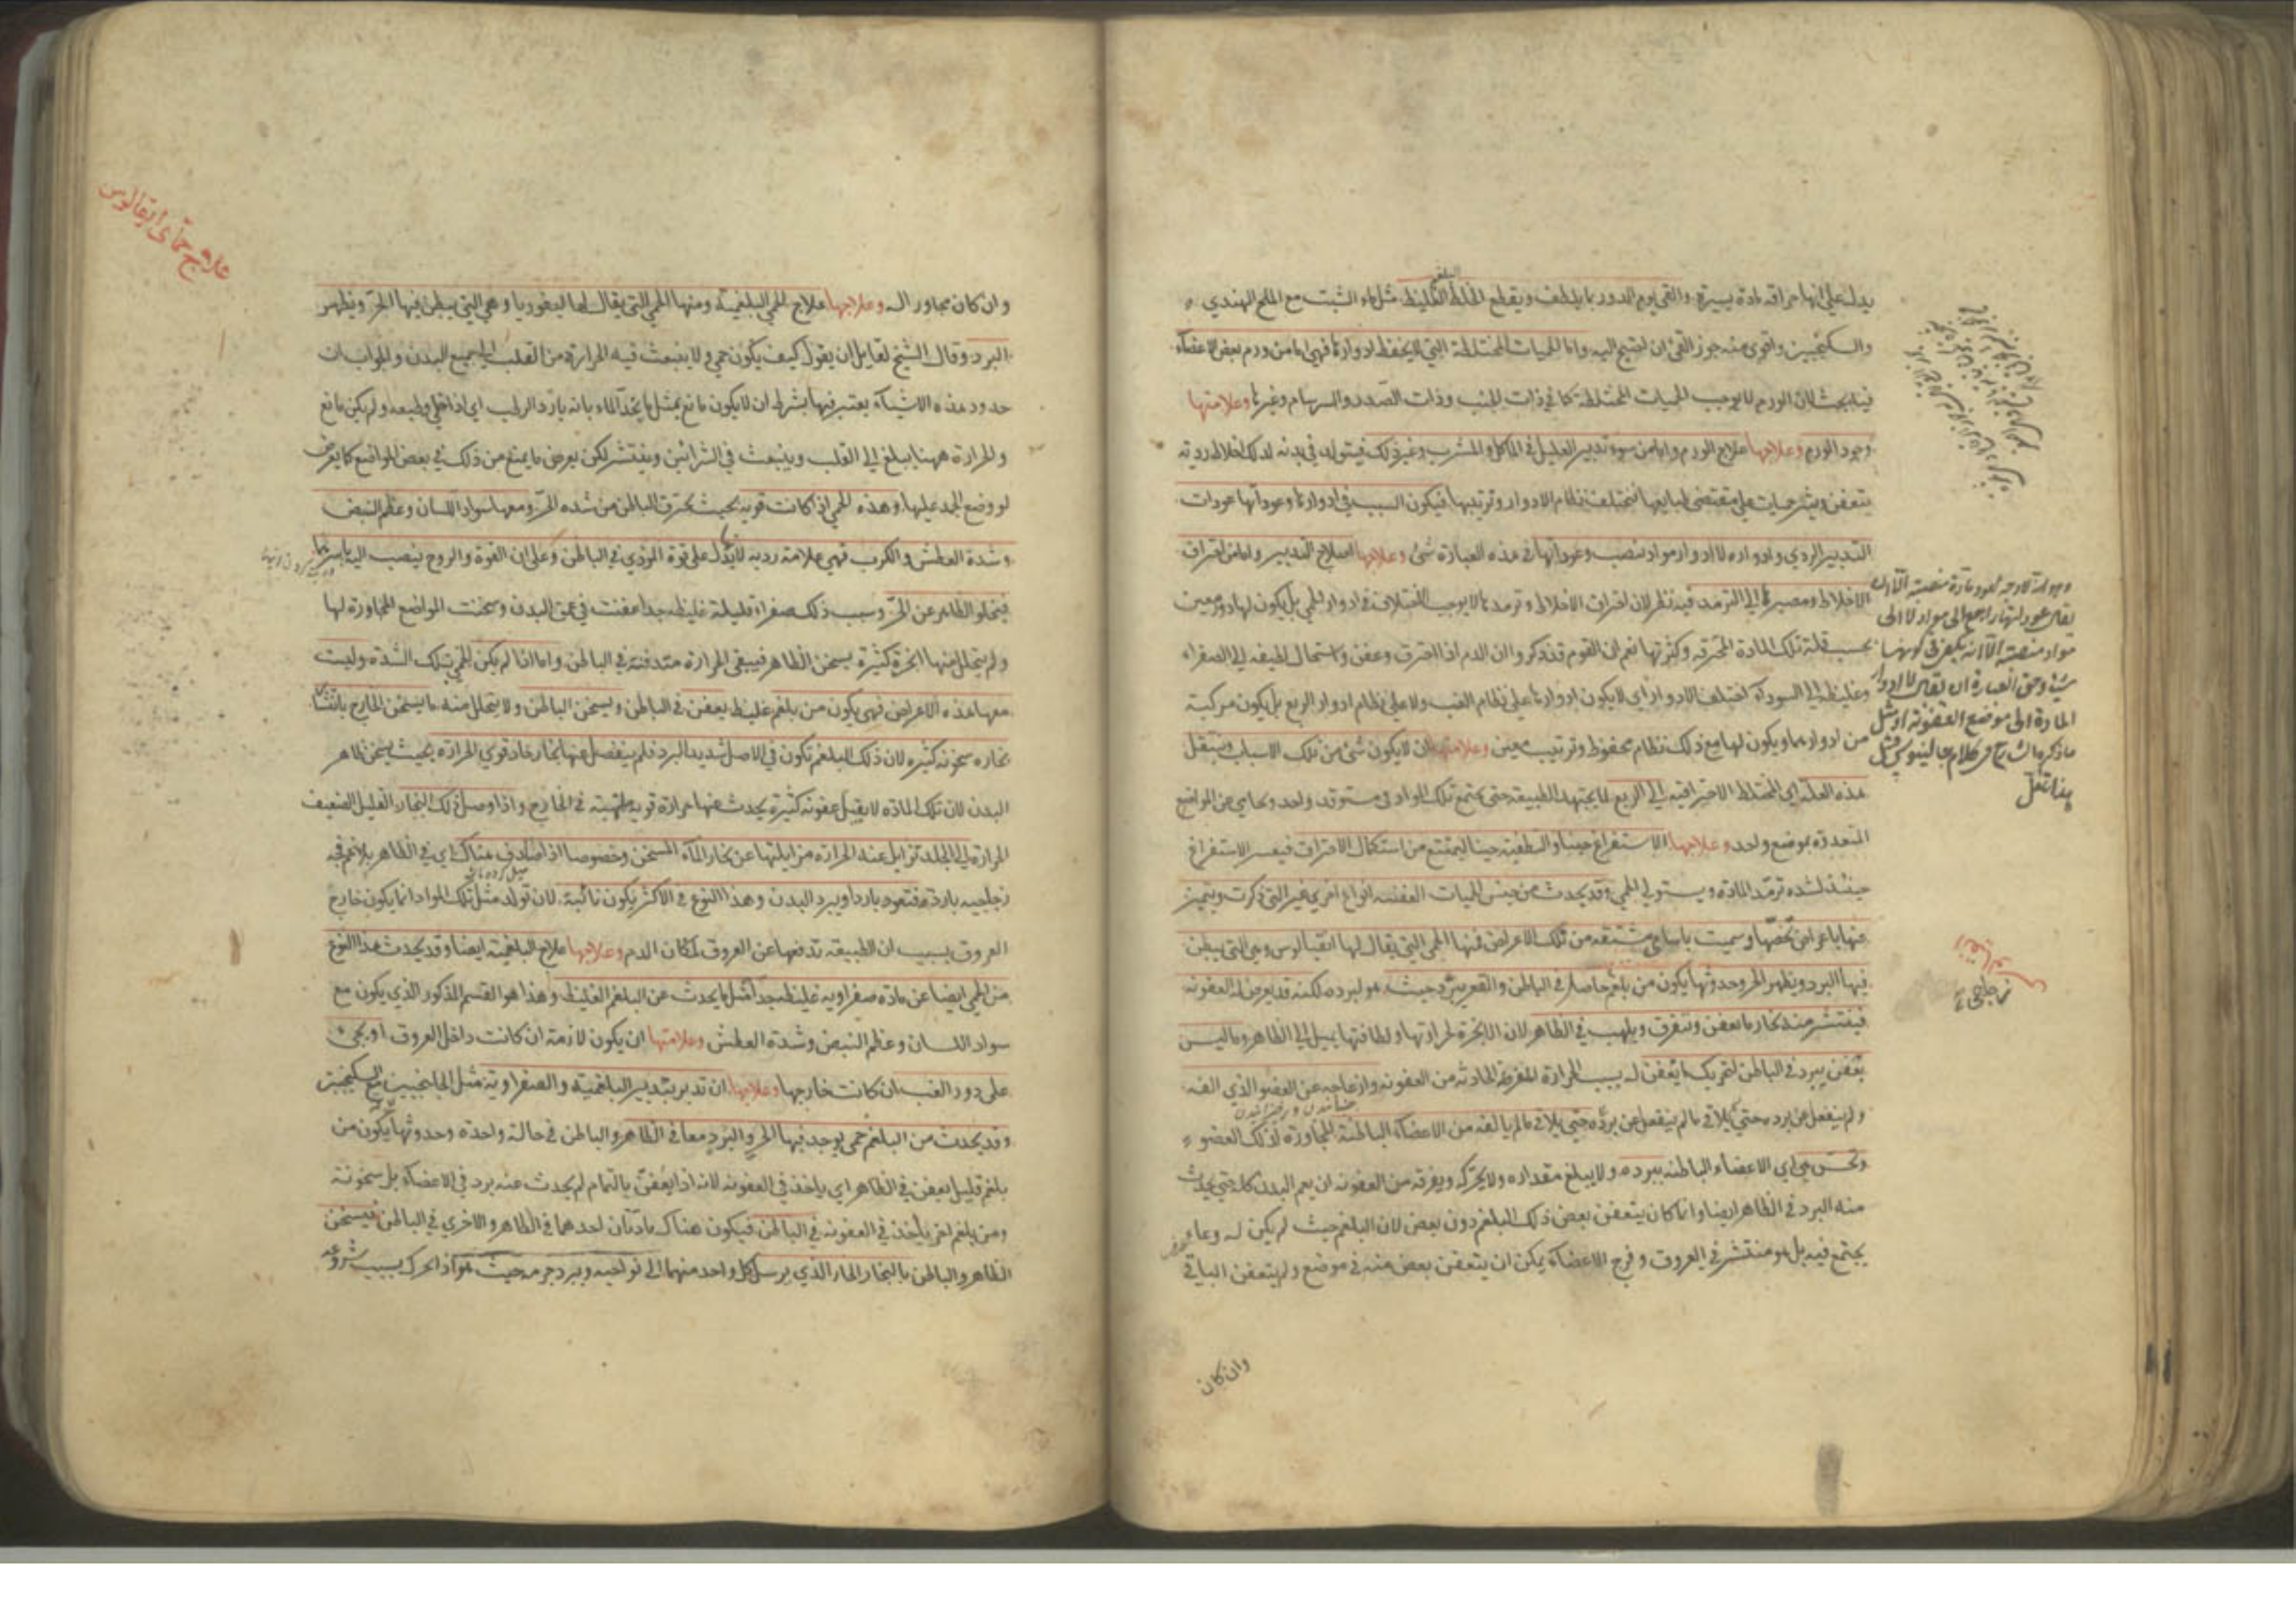 يدل على انها حراقة مادة يسيرة والقي يوم الدور بما يلطف ويقطع الخلط الغليظ مثل ماء الشبت مع الملح الهندي
البلغمي
والسكنجبين واقوى منه جوز القي ان احتيج اليه واما الحميات المختلطة التي لا يحفظ ادوارها فهي اما من ورم بعض الاعضاء
فيه بحث لان الورم لا يوجب الحميات المختلطة كما في ذات الجنب وذات الصدر والسرسام وغيرها وعلامتها
وجود الورم وعلاجها علاج الورم واما من سوء تدبير العليل في الماكل والمشرب وغير ذلك فيتولد في بدنه لذلك اخلاط ردية
يتعفن ويثير حميات على مقتضى طبايعها فتختلف نظام الادوار وترتيبها فيكون السبب في ادوارها وعوداتها عودات
التدبير الردي وادواره لا ادوار مواد تنصب وعوداتها في هذه العبارة شئ وعلاجها اصلاح التدبير واما من احتراق
الاخلاط ومصيرها الى الترمد فيه نظر لان احتراق الاخلاط وترمدها لا يوجب اختلاف ادوار الحمى بل يكون لها دور معين
بحسب قلة تلك المادة المحترقة وكثرتها نعم ان القوم قد ذكروا ان الدم اذا احترق وعفن واستحال لطيفه الى الصفراء
وغليظه الى السوداء اختلف الادوار اي لا يكون ادوارها على نظام الغب ولا على نظام ادوار الربع بل يكون مركبة
من ادوارهما ويكون لها مع ذلك نظام محفوظ وترتيب معين وعلامتها ان لا يكون شئ من تلك الاسباب وينتقل
هذه العلة اي المختلط الاحتراقية الى الربع لما يجتهد الطبيعة حتى يجتمع تلك المواد في مستوقد واحد وتحامي عن المواضع
المتعددة بموضع واحد وعلاجها الاستفراغ حينا والتطفية حينا ليمتنع من استكمال الاحتراق فيعسر الاستفراغ
حينئذ لشدة ترمد المادة ويستولي الحمى وقد يحدث من جنس الحميات العفنة انواع اخرى غير التي ذكرت ويتميز
عنها باعراض تخصها وسميت باسامي مشتقة من تلك الاعراض فمنها الحمى التي يقال لها انفيالوس وهي التي يبطن
فيها البرد ويظهر الحر وحدوثها يكون من بلغم حاصل في الباطن والقعر يبرد حيث هو لبرده لكنه قد يعرض له العفونة
فينتشر منه بخار ما تعفن ويتفرق ويلهب في الظاهر لان الابخرة لحرارتها ولطافتها يميل الى الظاهر وما ليس
يتعفن يبرد في الباطن لتحريك ما يتعفن له بسبب الحرارة المفرطة الحادثة من العفونة وازعاجه عن العضو الذي الفه
ولم ينفعل عن برده حتى يلاقي ما لم ينفعل عن برده حتى يلاقي ما لم يالفه من الاعضاء الباطنة المجاورة لذلك العضو
وتحس هي اي الاعضاء الباطنة ببرده ولا يبلغ مقداره ولا يحركه ويفرقه من العفونة ان يعم البدن كله حتى يحدث
منه البرد في الظاهر ايضا وانما كان يتعفن بعض ذلك البلغم دون بعض لان البلغم حيث لم يكن له وعاء
يجتمع فيه بل هو منتشر في العروق وفرج الاعضاء يمكن ان يتعفن بعض منه في موضع ولم يتعفن الباقي
وان كان
زجاجي
علاج حماى انفيالوس
وان كان مجاورا له وعلاجها علاج الحمى البلغمية ومنها الحمى التي يقال لها ليفوريا وهي التي يبطن فيها الحر ويظهر
البرد وقال الشيخ لقايل ان يقول كيف يكون حمى ولا ينبعث فيه الحرارة من القلب الى جميع البدن والجواب ان
حدود هذه الاشياء يعتبر فيها بشرط ان لا يكون مانع مثل ما يحد الماء بانه بارد الرطب اي اذا خلي وطبعه ولم يكن مانع
والحرارة ههنا يبلغ الى القلب وينبعث في الشرائين وينتشر لكن يعرض ما يمنع من ذلك في بعض المواضع كما يعرض
لو وضع الجمد عليها وهذه الحمى اذا كانت قوية بحيث يحترق الباطن من شدة الحر ومعها سواد اللسان وعظم النبض
وشدة العطش والكرب فهي علامة ردية لانها يدل على قوة الموذي في الباطن وعلى ان القوة والروح ينصب اليه باسرهما
فيخلو الظاهر عن الحر وسبب ذلك صفراء قليلة غليظة جدا عفنت في عمق البدن وسخنت المواضع المجاورة لها
ولم يتحلل منها ابخرة كثيرة يسخن الظاهر فيبقى الحرارة مندفنة في الباطن واما اذا لم يكن الحمى بتلك الشدة وليست
معها هذه الاعراض فهي يكون من بلغم غليظ يعفن في الباطن ويسخن الباطن ولا يتحلل منه ما يسخن الخارج بانتشار
بخاره سخونة كثيرة لان ذلك البلغم تكون في الاصل شديد البرد فلم ينفصل عنها بخار حاد قوي الحرارة بحيث يسخن ظاهر
البدن لان تلك المادة لا يقبل عفونة كثيرة يحدث عنها حرارة قوية ملتهبة في الخارج واذا وصل ذلك البخار القليل الضعيف
الحرارة الى الجلد تزايل عنه الحرارة مزايلتها عن بخار الماء المسخن وخصوصا اذا صادف هناك اي في الظاهر بلاغم فجة
زجاجية باردة فتعود باردا ويبرد البدن وهذا النوع في الاكثر يكون نائبة لان تولد مثل تلك المواد انما يكون خارج
العروق بسبب ان الطبيعة تدفعها عن العروق لمكان الدم وعلاجها علاج البلغمية ايضا وقد يحدث هذا النوع
من الحمى ايضا عن مادة صفراوية غليظة جدا مثل ما يحدث عن البلغم الغليظ وهذا هو القسم المذكور الذي يكون مع
سواد اللسان وعظم النبض وشدة العطش وعلامتها ان يكون لازمة ان كانت داخل العروق او يجئ
على دور الغب ان كانت خارجها وعلاجها ان تدبر بتدبير البلغمية والصفراوية مثل الجلنجبين مع السكنجبين
وقد يحدث من البلغم حمى يوجد فيها الحر والبرد معا في الظاهر والباطن في حالة واحدة وحدوثها يكون من
بلغم قليل يعفن في الظاهر اي ياخذ في العفونة لانه اذا يعفن بالتمام لم يحدث عنه برد في الاعضاء بل سخونة
ومن بلغم اخر ياخذ في العفونة في الباطن فيكون هناك مادتان احدهما في الظاهر والاخرى في الباطن فيسخن
الظاهر والباطن بالبخار الحار الذي يرسل كل واحد منهما الى نواحيه ويبرد جرمه حيث هو اذا تحرك بسبب شروعه